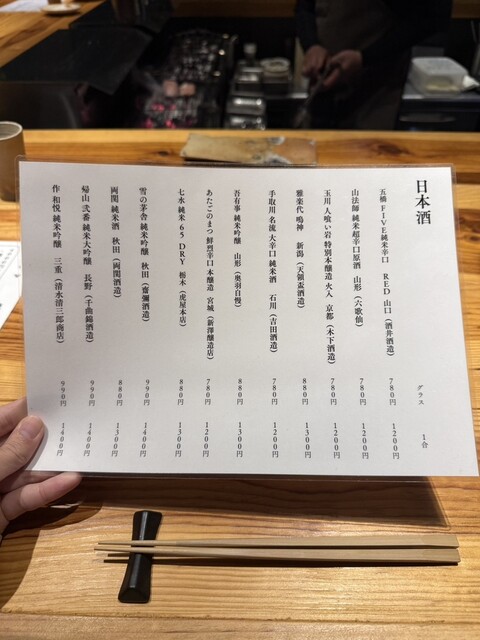 日本酒
グラス 1合
五橋 FIVE 純米辛口 RED 山口 (酒井酒造) 780円 1200円
山法師 純米超辛口原酒 山形 (六歌仙) 780円 1200円
玉川 人喰い岩 特別本醸造 火入 京都 (木下酒造) 780円 1200円
雅楽代 鳴神 新潟 (天領盃酒造) 880円 1300円
手取川 名流 大辛口 純米酒 石川 (吉田酒造) 780円 1200円
吾有事 純米吟醸 山形 (奥羽自慢) 880円 1300円
あたごのまつ 鮮烈辛口 本醸造 宮城 (新澤醸造店) 780円 1200円
七水 純米 65 DRY 栃木 (虎屋本店) 880円 1300円
雪の茅舎 純米吟醸 秋田 (齋彌酒造) 990円 1400円
両関 純米酒 秋田 (両関酒造) 880円 1300円
帰山 弐番 純米大吟醸 長野 (千曲錦酒造) 990円 1400円
作 和悦 純米吟醸 三重 (清水清三郎商店) 990円 1400円